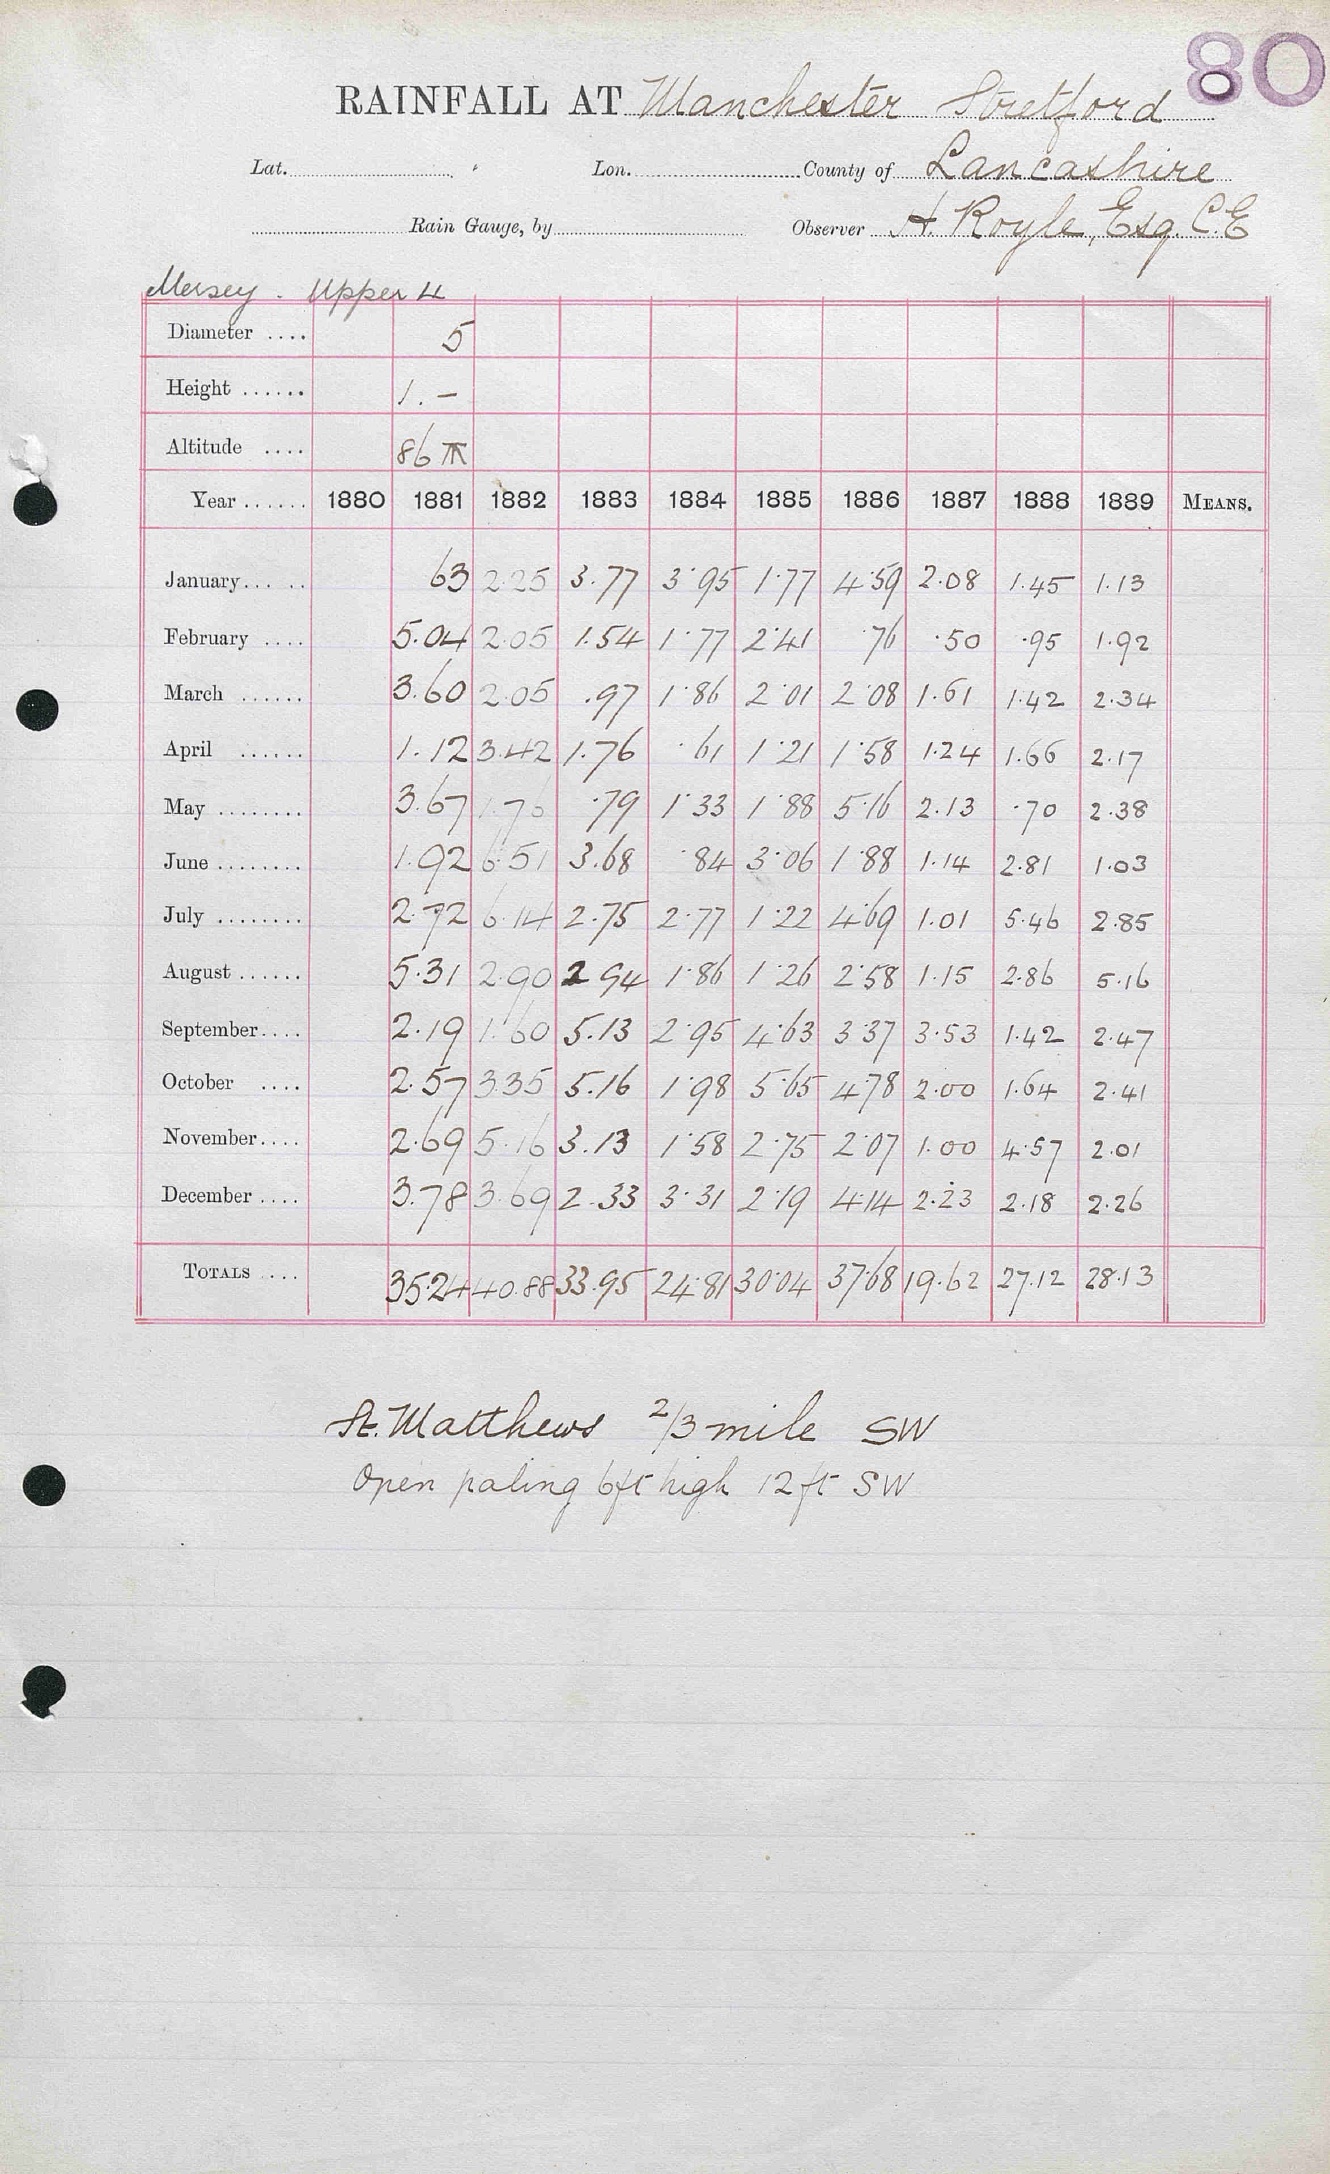 80
RAINFALL AT Manchester Stretford
Lat. Lon. County of Lancashire
Rain Gauge, by Observer H. Royle, Esq. C.E
Mersey - Upper 4
Diameter .... 5
Height ...... 1. -
Altitude .... 86
Year ...... 1880 1881 1882 1883 1884 1885 1886 1887 1888 1889 MEANS.
January... .. 63 2.25 3.77 3·95 1·77 4·59 2.08 1.45 1.13
February .... 5.04 2.05 1.54 1·77 2·41 ·76 ·50 ·95 1.92
March ...... 3.60 2.05 .97 1·86 2·01 2·08 1.61 1.42 2.34
April ...... 1.12 3.42 1.76 ·61 1·21 1·58 1.24 1.66 2.17
May ........ 3.67 1.76 .79 1·33 1·88 5·16 2.13 ·70 2.38
June ........ 1.92 6.51 3.68 ·84 3·06 1·88 1.14 2.81 1.03
July ........ 2.72 6.14 2.75 2·77 1·22 4·69 1.01 5.46 2.85
August ...... 5.31 2.90 2 94 1·86 1·26 2·58 1.15 2.86 5.16
September.... 2.19 1.60 5.13 2·95 4·63 3·37 3.53 1.42 2.47
October .... 2.57 3.35 5.16 1·98 5·65 4·78 2.00 1.64 2.41
November.... 2.69 5.16 3.13 1·58 2·75 2·07 1.00 4.57 2.01
December .... 3.78 3.69 2.33 3·31 2·19 4·14 2.23 2.18 2.26
TOTALS .... 35.24 40.88 33.95 24·81 30·04 37·68 19.62 27.12 28.13
St. Matthews 2/3 mile SW
Open paling 6ft high 12 ft SW